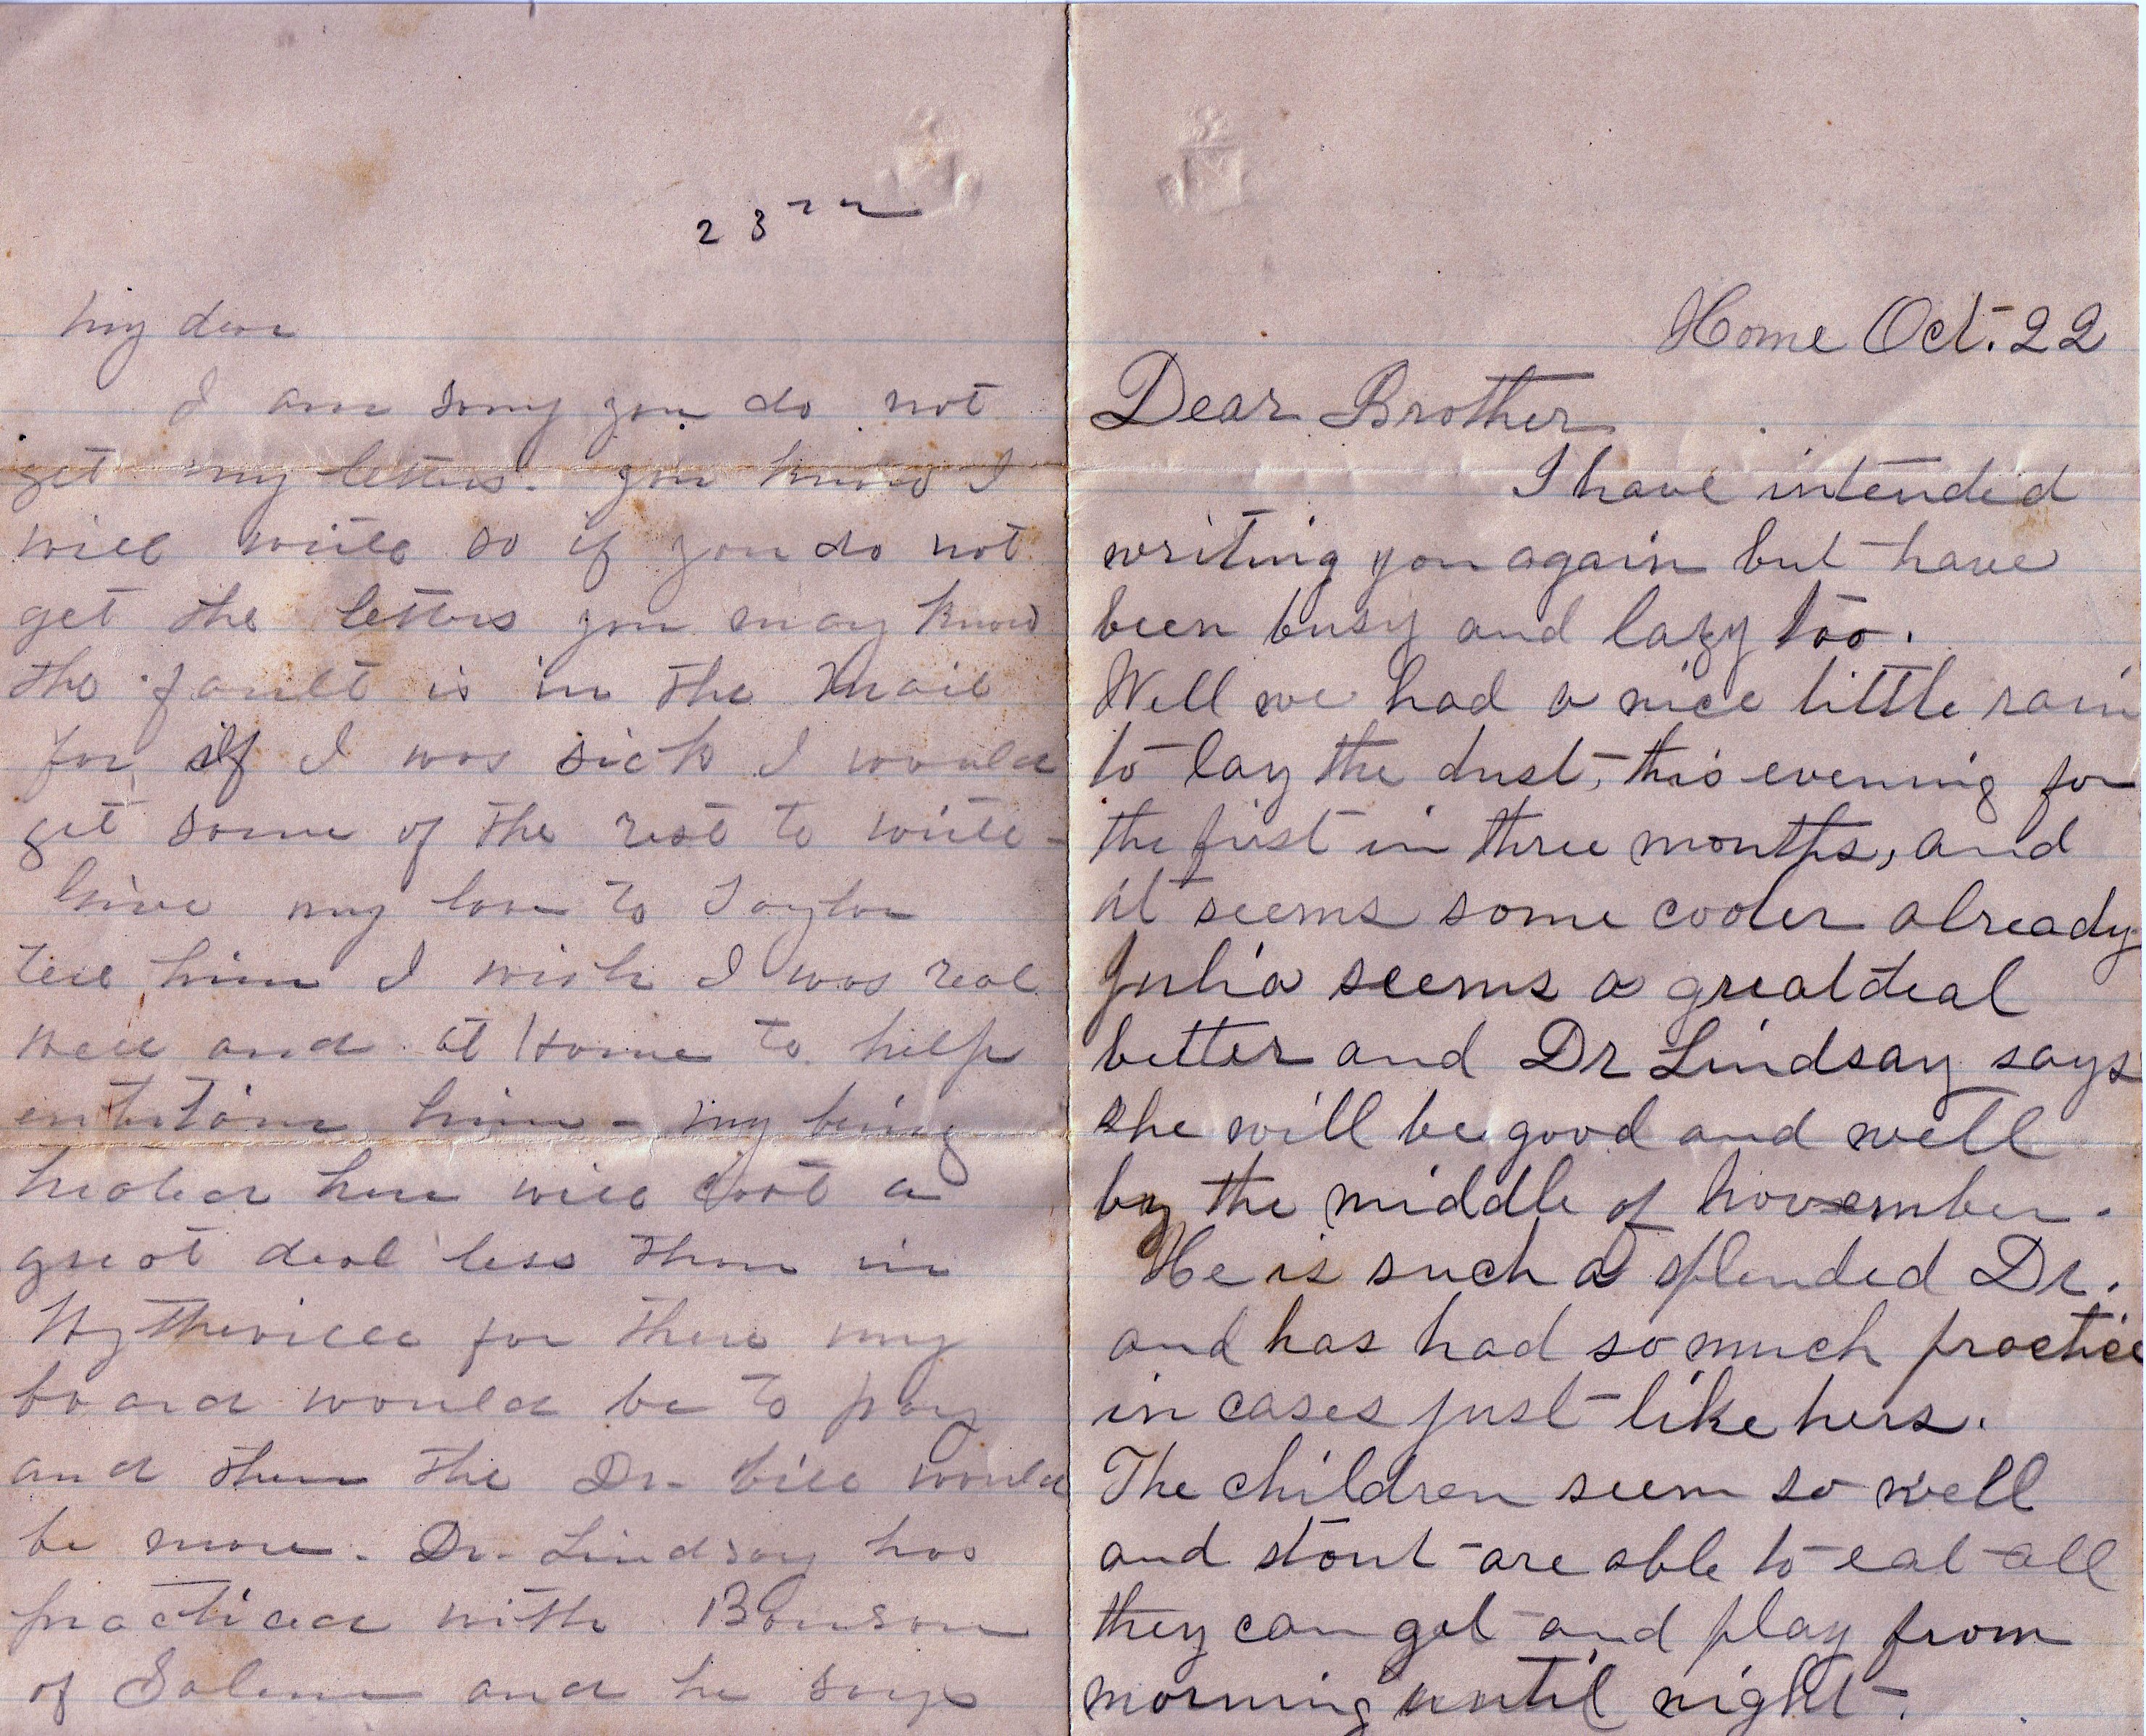 23rd
My dear
I am sorry you do not
get my letters. you know I
will write so if you do not
get the letters you may know
the fault is in the mail
for if I was sick I would
get some of the rest to write -
Give my love to Taylor
tell him I wish I was real
well and at Home to help
entertain him - my being
treated here will cost a
great deal less than in
Wytheville for there my
board would be to pay
and then the Dr. bill would
be more. Dr. Lindsay has
practiced with
of Salem and he says
Home Oct. 22
Dear Brother
I have intended
writing you again but have
been busy and lazy too.
Well we had a nice little rain
to lay the dust, this evening for
the first in three months, and
it seems some cooler already
Julia seems a great deal
better and Dr Lindsay says
she will be good and well
by the middle of november.
He is such a splended Dr.
and has had so much practice
in cases just like hers.
The children seem so well
and stout are able to eat all
they can get and play from
morning until night.